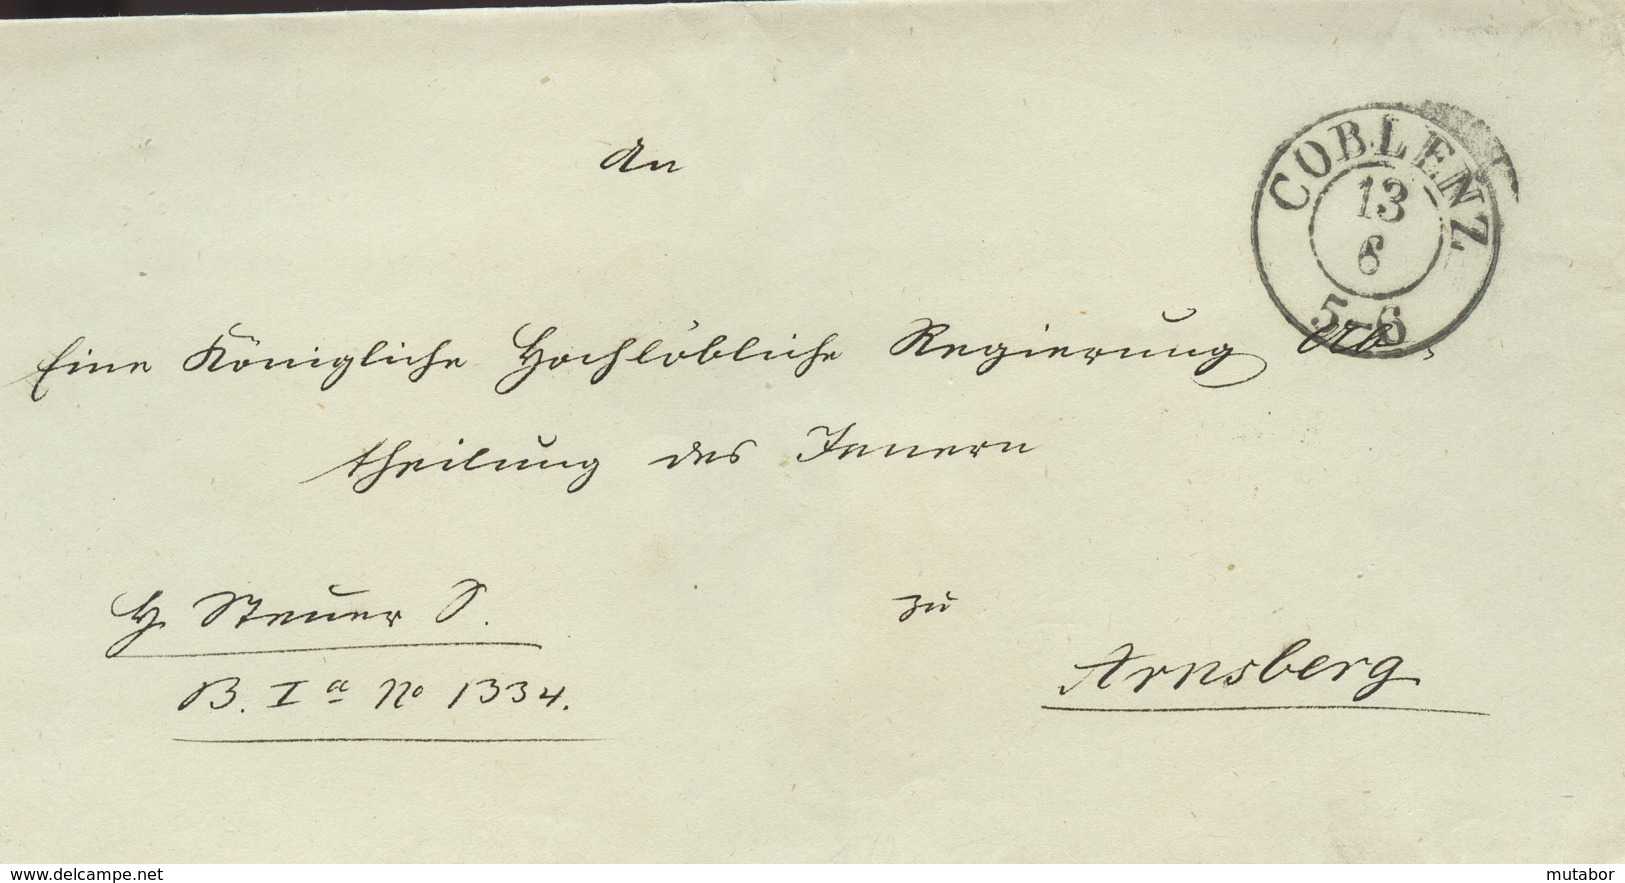 An
COBLENZ
13
6
5-6
Eine Königliche Hochlöbliche Regierung Ab-
theilung des Innern
H. Steuer S.
zu
B. I a No 1334.
Arnsberg
www.delcampe.net
mutabor